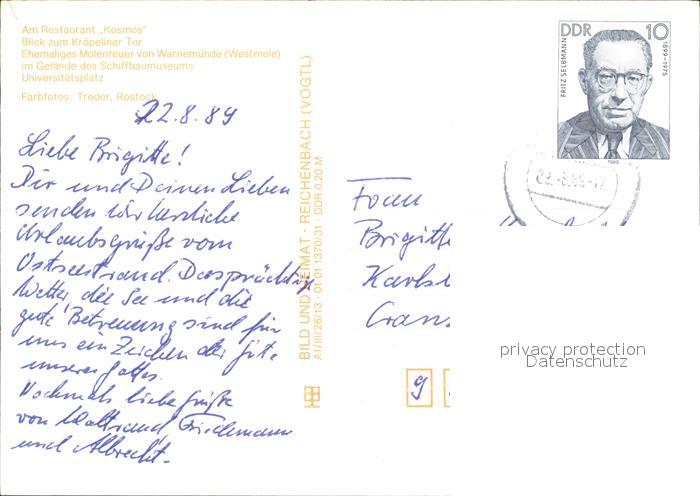 Am Restaurant „Kosmos"
Blick zum Kröpeliner Tor
Ehemaliges Molenfeuer von Warnemünde (Westmole)
im Gelände des Schiffbaumuseums
Universitätsplatz
Farbfotos: Treder, Rostock
22.8.89
Liebe Brigitte!
Dir und Deinen Lieben
senden wir herzliche
Urlaubsgrüße vom
Ostseestrand. Das prächtige
Wetter, die See und die
gute Betreuung sind für
uns ein Zeichen der Güte
unseres Gottes.
Nochmals liebe Grüße
von Waltraud Friedemann
und Albrecht.
BILD UND HEIMAT · REICHENBACH (VOGTL)
A1/III/26/13 · 01 01 1370/31 · DDR 0,20 M
DDR 10
FRITZ SELBMANN
1899-1975
1989
Frau
Brigitte
Karls
Crans
9
privacy protection
Datenschutz